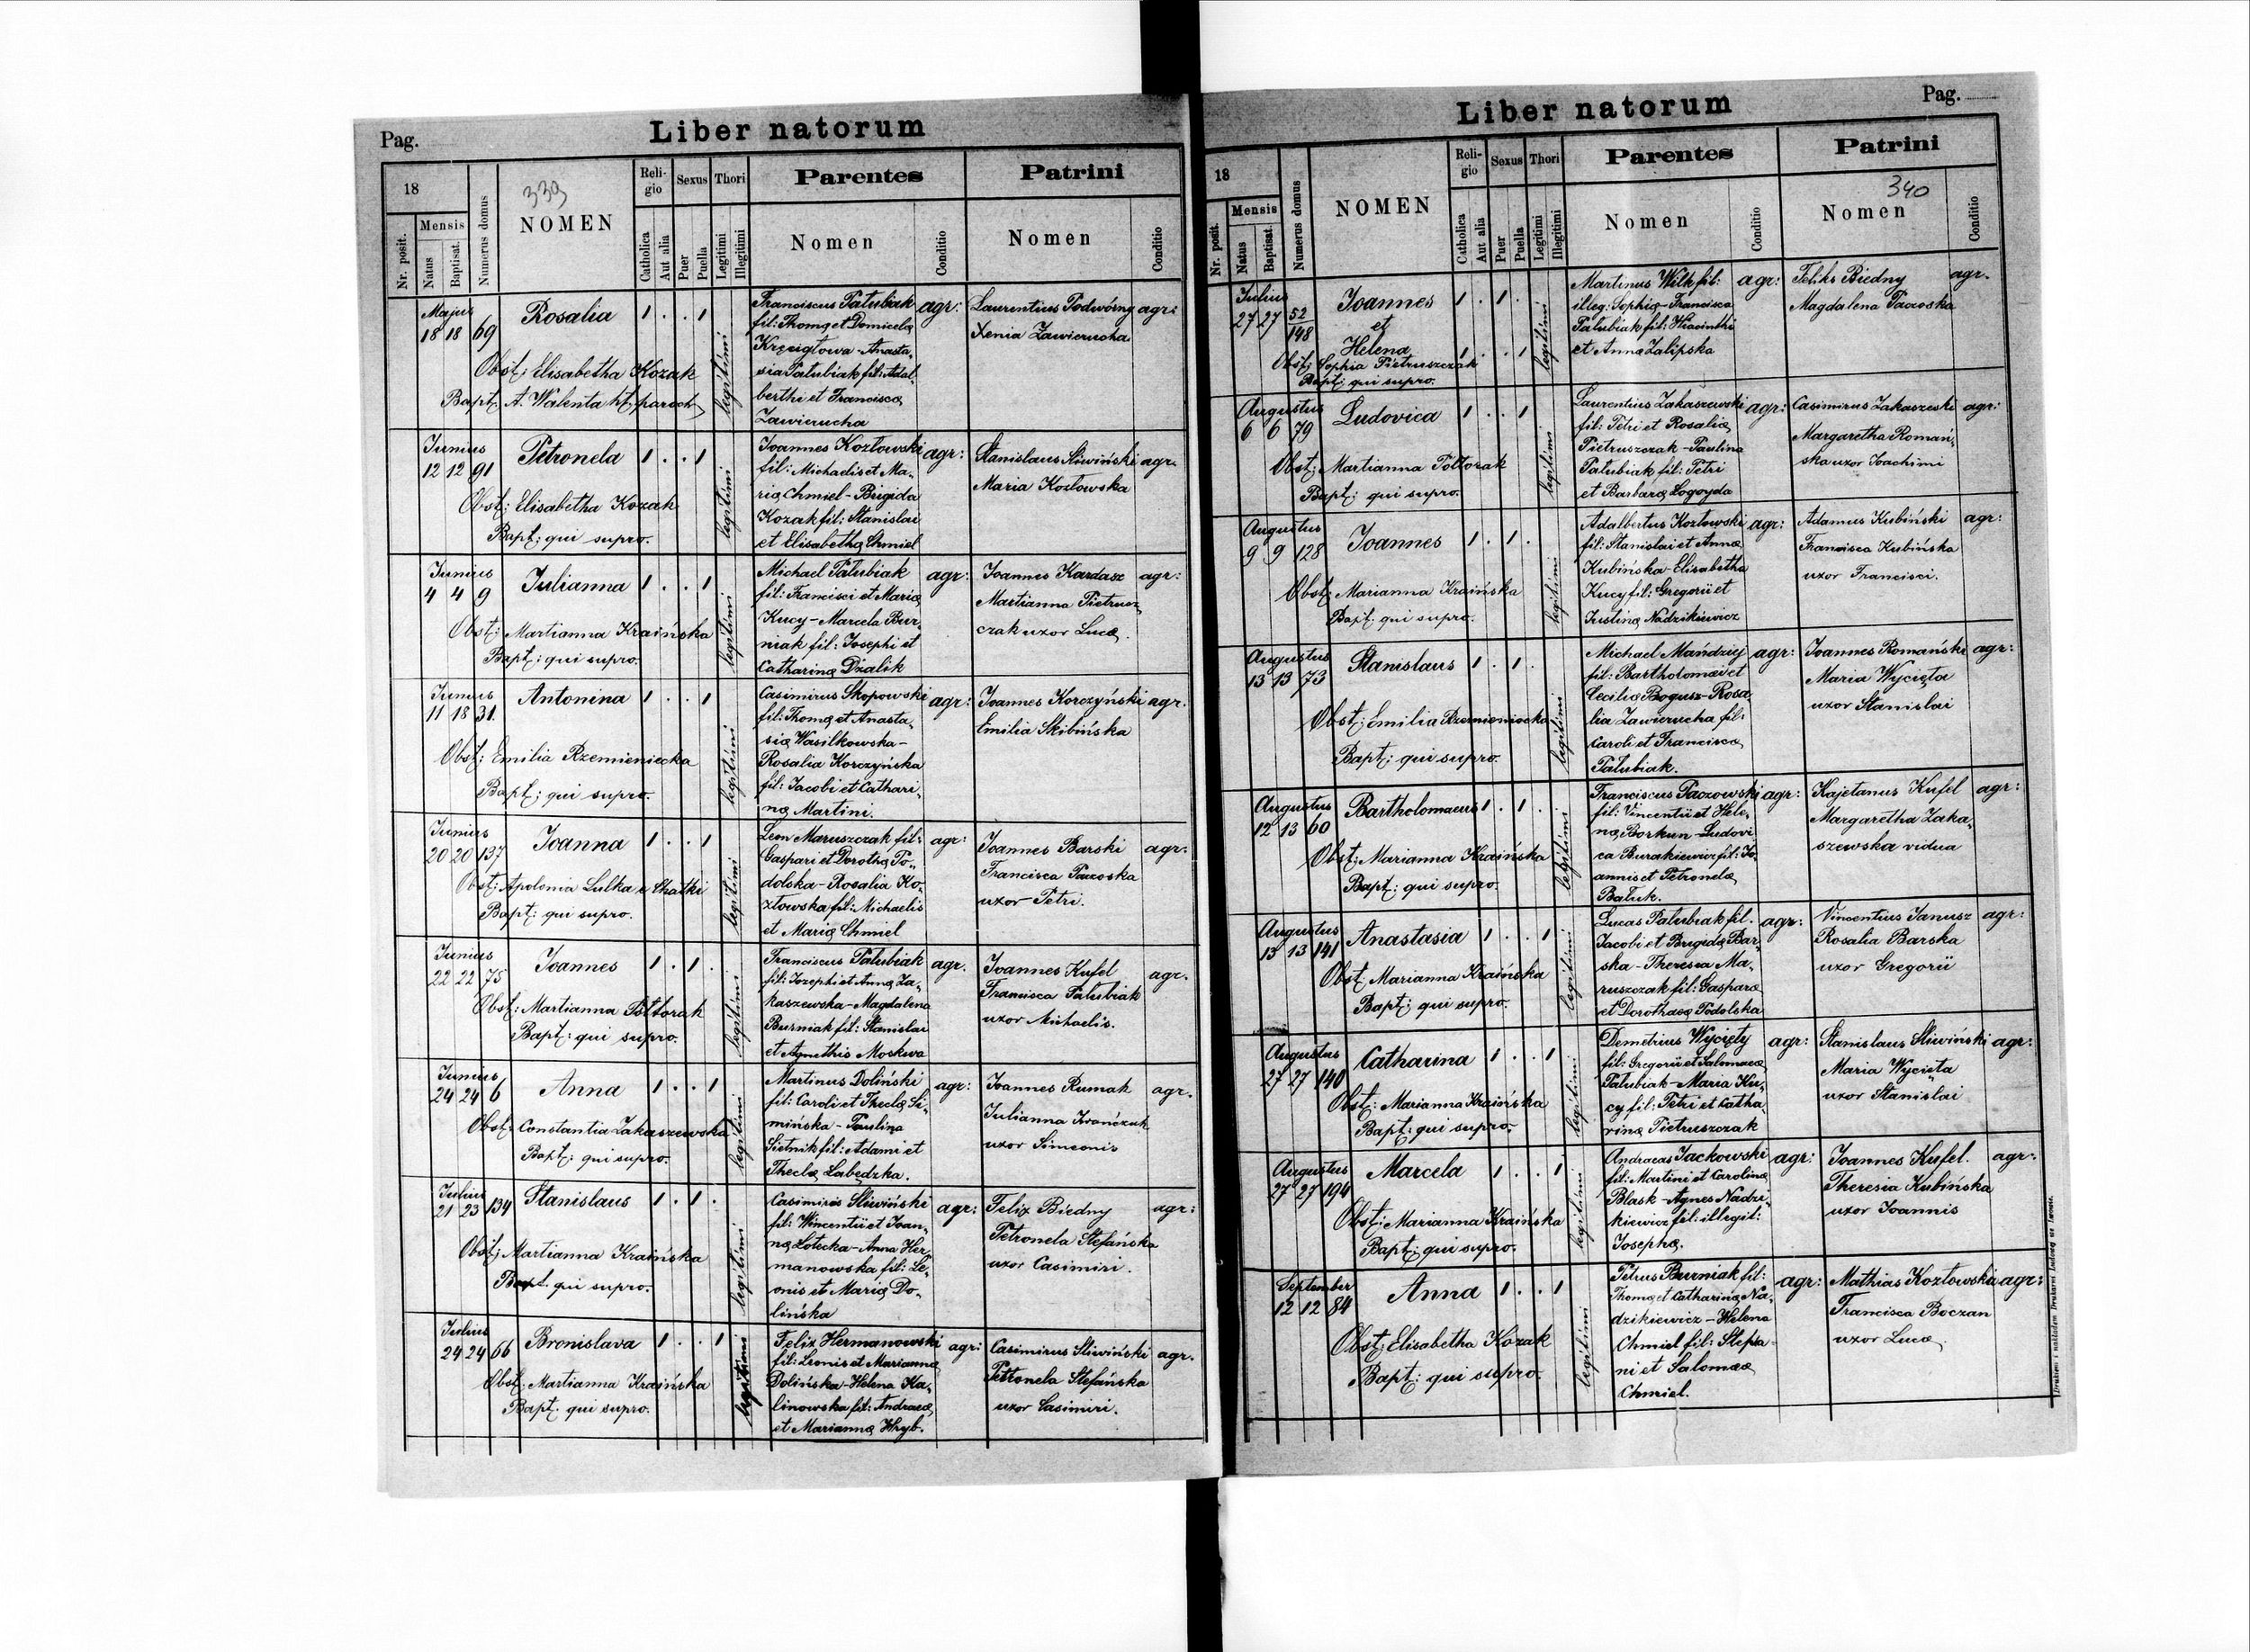 Pag.
Liber natorum
18
339
Nr. posit.
Mensis
Natus
Baptisat.
Numerus domus
NOMEN
Religio
Catholica
Aut alia
Sexus
Puer
Puella
Thori
Legitimi
Illegitimi
Parentes
Nomen
Conditio
Patrini
Nomen
Conditio
Majus
18 18 69
Rosalia
1 . . 1
legitimi
Obst: Elisabetha Kozak
Bapt. A. Walenta lt. paroch
Franciscus Pałubiak
fil: Thomę et Domicelę
Kręcigłowa - Anasta-
sia Pałubiak fil: Adal-
berthi et Franciscę
Zawierucha
agr:
Laurentius Podwórny agr:
Xenia Zawierucha
Junius
12 12 91
Petronela
1 . . 1
legitimi
Obst: Elisabetha Kozak
Bapt: qui supro.
Joannes Kozłowski
fil: Michaelis et Ma-
rię Chmiel - Brigida
Kozak fil: Stanislai
et Elisabethę Chmiel
agr:
Stanislaus Sliwiński agr.
Maria Kozłowska
Junius
4 4 9
Julianna
1 . . 1
legitimi
Obst: Martianna Kraińska
Bapt: qui supro.
Michael Pałubiak
fil: Francisci et Marię
Kucy - Marcela Bur-
niak fil: Josephi et
Catharinę Dżalik
agr:
Joannes Kardasz agr:
Martianna Pietrusz-
czak uxor Lucę.
Junius
11 18 31.
Antonina
1 . . 1
legitimi
Obst: Emilia Rzemieniecka
Bapt: qui supro.
Casimirus Skopowski
fil: Thomę et Anasta-
się Wasilkowska -
Rosalia Korczyńska
fil: Jacobi et Cathari-
nę Martini.
agr:
Joannes Korczyński agr.
Emilia Skibińska
Junius
20 20 137
Joanna
1 . . 1
legitimi
Obst: Apolonia Lulka e Chatki
Bapt: qui supro.
Leon Maruszczak fil:
Gaspari et Dorothę Po-
dolska - Rosalia Ko-
złowska fil: Michaelis
et Marię Chmiel
agr:
Joannes Barski agr.
Francisca Paczoska
uxor Petri.
Junius
22 22 75
Joannes
1 . 1 .
legitimi
Obst: Martianna Półtorak
Bapt: qui supro.
Franciscus Pałubiak
fil: Josephi et Annę Za-
kaszewska - Magdalena
Burniak fil: Stanislai
et Agnethis Moskwa
agr.
Joannes Kufel agr.
Francisca Pałubiak
uxor Michaelis.
Junius
24 24 6
Anna
1 . . 1
legitimi
Obst: Constantia Zakaszewska
Bapt: qui supro.
Martinus Doliński
fil: Caroli et Theclę Si-
mińska - Paulina
Sietnik fil: Adami et
Theclę Łabędzka.
agr:
Joannes Rumak agr.
Julianna Iwańczuk
uxor Simeonis
Julius
21 23 134
Stanislaus
1 . 1 .
legitimi
Obst: Martianna Kraińska
Bapt. qui supro.
Casimirus Sliwiński
fil: Wincentii et Joan-
nę Łotecka - Anna Her-
manowska fil: Le-
onis et Marię Do-
lińska
agr:
Felix Biedny agr:
Petronela Stefańska
uxor Casimiri.
Julius
24 24 66
Bronislava
1 . . 1
legitimi
Obst: Martianna Kraińska
Bapt. qui supro.
Felix Hermanowski
fil: Leonis et Mariannę
Dolińska - Helena Ka-
linowska fil: Andreaę
et Mariannę Hryb.
agr:
Casimirus Sliwiński agr.
Petronela Stefańska
uxor Casimiri.
Liber natorum
Pag.
18
Nr. posit.
Mensis
Natus
Baptisat.
Numerus domus
NOMEN
Religio
Catholica
Aut alia
Sexus
Puer
Puella
Thori
Legitimi
Illegitimi
Parentes
Nomen
Conditio
Patrini
340
Nomen
Conditio
Julius
27 27 52
148
Joannes
et
Helena
1 . 1 .
1 . . 1
legitimi
Obst: Sophia Pietruszczak
Bapt: qui supro.
Martinus Wilk fil:
illeg: Sophię - Francisca
Pałubiak fil: Hiacinthi
et Annę Zalipska
agr:
Feliks Biedny agr.
Magdalena Paczoska
Augustus
6 6 79
Ludovica
1 . . 1
legitimi
Obst: Martianna Półtorak
Bapt: qui supro.
Laurentius Zakaszewski
fil: Petri et Rosalię
Pietruszczak - Paulina
Pałubiak fil: Petri
et Barbarę Łogoyda
agr:
Casimirus Zakaszeski agr:
Margaretha Romań-
ska uxor Joachimi
Augustus
9 9 128
Joannes
1 . 1 .
legitimi
Obst: Marianna Kraińska
Bapt: qui supro.
Adalbertus Kozłowski
fil: Stanislai et Annę
Kubińska - Elisabetha
Kucy fil: Gregorii et
Justinę Nadzikiewicz
agr:
Adamus Kubiński agr:
Francisca Kubińska
uxor Francisci.
Augustus
13 13 73
Stanislaus
1 . 1 .
legitimi
Obst: Emilia Rzemieniecka
Bapt: qui supro.
Michael Mańdziej
fil: Bartholomaei et
Cecilię Bogusz - Rosa-
lia Zawierucha fil:
Caroli et Franciscę
Pałubiak.
agr:
Joannes Romański agr:
Maria Wycięta
uxor Stanislai
Augustus
12 13 60
Bartholomaeus
1 . 1 .
legitimi
Obst: Marianna Kraińska
Bapt: qui supro.
Franciscus Paczowski
fil: Vincentii et Hele-
nę Borkun - Ludovi
ca Burakiewicz fil: Jo-
annis et Petronelę
Bałuk.
agr:
Kajetanus Kufel agr:
Margaretha Zaka-
szewska vidua
Augustus
13 13 141
Anastasia
1 . . 1
legitimi
Obst: Marianna Kraińska
Bapt: qui supro.
Lucas Pałubiak fil.
Jacobi et Brigidę Bar-
ska - Theresia Ma-
ruszczak fil: Gasparę
et Dorothaeę Podolska
agr:
Vincentius Janusz agr:
Rosalia Barska
uxor Gregorii
Augustus
27 27 140
Catharina
1 . . 1
legitimi
Obst: Marianna Kraińska
Bapt: qui supro.
Demetrius Wycięty
fil: Gregorii et Salomeaę
Pałubiak - Maria Ku-
cy fil: Petri et Catha-
rinę Pietruszczak
agr:
Stanislaus Sliwiński agr:
Maria Wycięta
uxor Stanislai
Augustus
27 27 194
Marcela
1 . . 1
legitimi
Obst: Marianna Kraińska
Bapt: qui supro.
Andraeas Jackowski
fil: Martini et Carolinę
Blask - Agnes Nadzi-
kiewicz fil: illegit:
Josephę.
agr:
Joannes Kufel. agr:
Theresia Kubińska
uxor Joannis
September
12 12 84
Anna
1 . . 1
legitimi
Obst: Elisabetha Kozak
Bapt: qui supro.
Petrus Burniak fil:
Thomę et Catharinę Na-
dzikiewicz - Helena
Chmiel fil: Stepha-
ni et Salomeaę
Chmiel.
agr:
Mathias Kozłowski agr:
Francisca Boczan
uxor Lucę
Drukiem i nakładem Drukarni Ludowej we Lwowie.